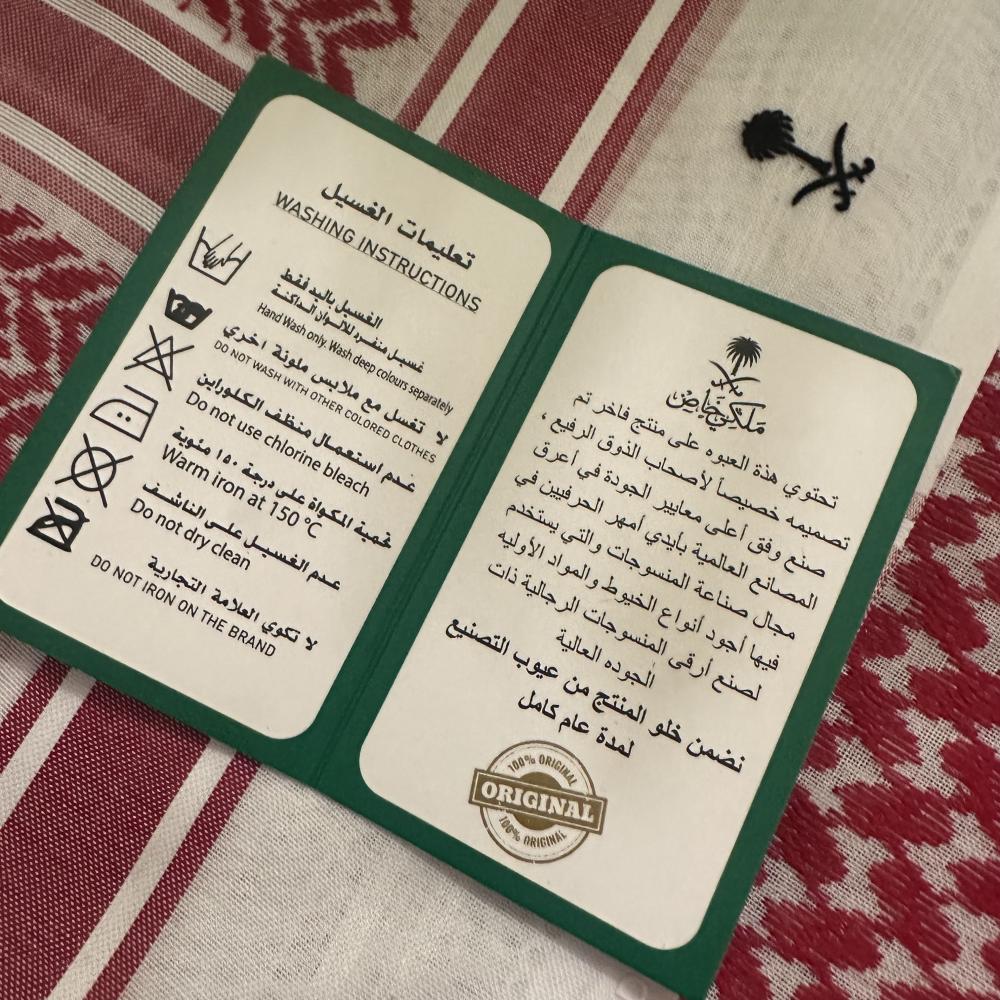 تعليمات الغسيل
WASHING INSTRUCTIONS
الغسيل باليد فقط
غسيل منفرد للالوان الداكنة
Hand Wash only. Wash deep colours separately
لا تغسل مع ملابس ملونة اخري
DO NOT WASH WITH OTHER COLORED CLOTHES
عدم استعمال منظف الكلوراين
Do not use chlorine bleach
تحمية المكواة على درجة ١٥٠ مئوية
Warm iron at 150 °C
عدم الغسيل على الناشف
Do not dry clean
لا تكوي العلامة التجارية
DO NOT IRON ON THE BRAND
ملكي خاص
تحتوي هذة العبوه على منتج فاخر تم
تصميمه خصيصاً لأصحاب الذوق الرفيع ،
صنع وفق أعلى معايير الجودة في أعرق
المصانع العالمية بأيدي أمهر الحرفيين في
مجال صناعة المنسوجات والتي يستخدم
فيها أجود أنواع الخيوط والمواد الأوليه
لصنع أرقى المنسوجات الرجالية ذات
الجوده العالية
نضمن خلو المنتج من عيوب التصنيع
لمدة عام كامل
100% ORIGINAL
ORIGINAL
100% ORIGINAL